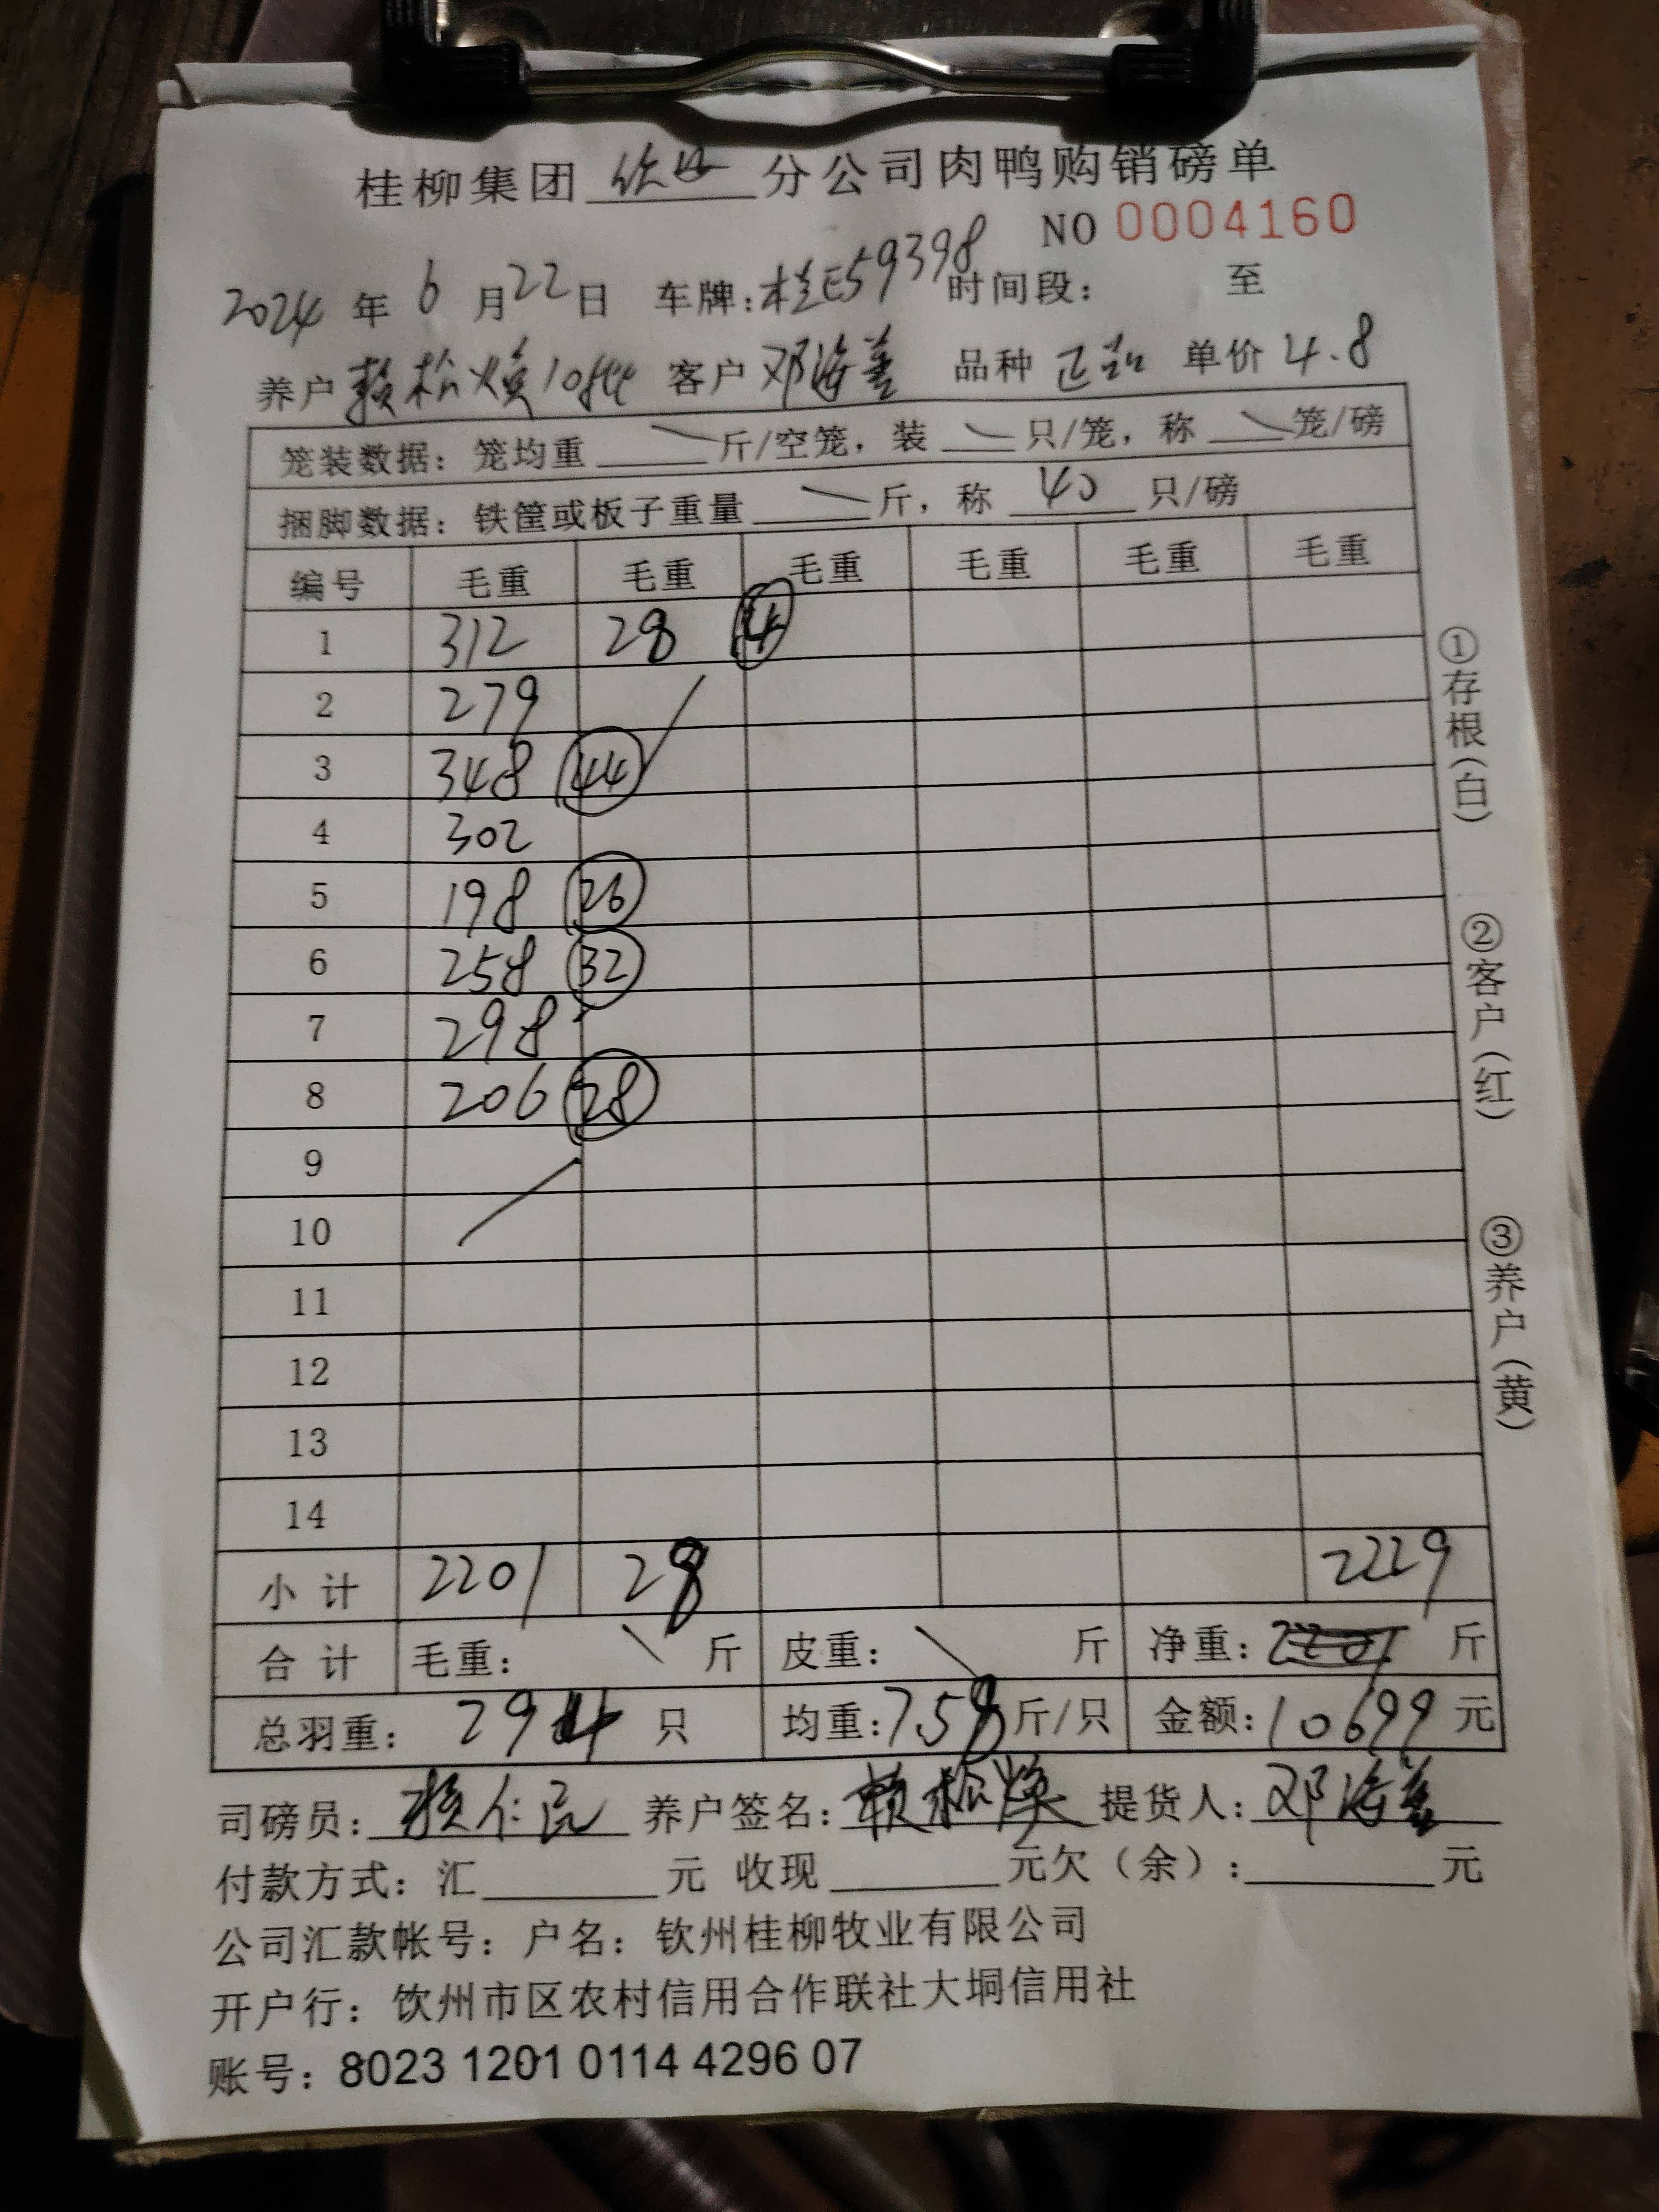 桂柳集团 钦州 分公司肉鸭购销磅单
NO 0004160
2024 年 6 月 22 日 车牌:桂E59398 时间段: 至
养户 赖松焕10批 客户 邓海善 品种 单价 4.8
笼装数据: 笼均重 斤/空笼, 装 只/笼, 称 笼/磅
捆脚数据: 铁筐或板子重量 斤, 称 40 只/磅
编号 毛重 毛重 毛重 毛重 毛重 毛重
1 312 28 4
2 279
3 348 44
4 302
5 198 26
6 258 32
7 298
8 206 28
9
10
11
12
13
14
小 计 2201 28 2229
合 计 毛重: 斤 皮重: 斤 净重: 2201 斤
总羽重: 294 只 均重:7.58斤/只 金额:10699 元
司磅员: 养户签名: 赖松焕 提货人: 邓海善
付款方式: 汇 元 收现 元欠 (余): 元
公司汇款帐号: 户名: 钦州桂柳牧业有限公司
开户行: 钦州市区农村信用合作联社大垌信用社
账号: 8023 1201 0114 4296 07
①存根(白)
②客户(红)
③养户(黄)